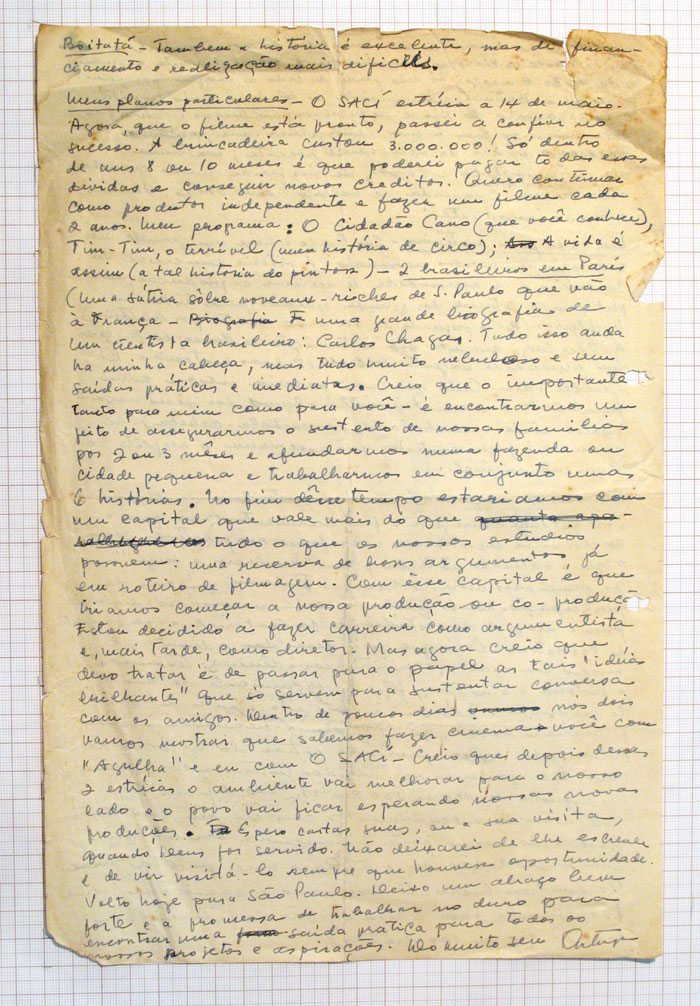 Boitatá - Tambem a história é excelente, mas de finan-
ciamento e realização mais dificeis.
Meus planos particulares - O SACÍ estréia a 14 de maio.
Agora, que o filme está pronto, passei a confiar no
sucesso. A brincadeira custou 3.000.000! Só dentro
de uns 8 ou 10 meses é que poderei pagar todas essas
dividas e conseguir novos creditos. Quero continuar
como produtor independente e fazer um filme cada
2 anos. Meu programa: O Cidadão Cano (que você conhece),
Tim-Tim, o terrível (uma história de circo); A vida é
assim (a tal historia do pintor) - 2 brasileiros em París
(uma sátira sôbre noveaux-riches de S. Paulo que vão
à França - Biografia E uma grande biografia de
um cientista brasileiro: Carlos Chagas. Tudo isso anda
na minha cabeça, mas tudo muito nebuloso e sem
saídas práticas e imediatas. Creio que o importante
tanto para mim como para você - é encontrarmos um
jeito de assegurarmos o sustento de nossas familias
por 2 ou 3 mêses e afundarmos numa fazenda ou
cidade pequena e trabalharmos em conjunto umas
6 histórias. No fim dêsse tempo estariamos com
um capital que vale mais do que quanta
tudo o que os nossos estudios
possuem: uma reserva de bons argumentos já
em roteiro de filmagem. Com êsse capital é que
iriamos começar a nossa produção ou co-produção
Estou decidido a fazer carreira como argumentista
e, mais tarde, como diretor. Mas agora creio que
devo tratar é de passar para o papel as tais "idéias
brilhantes" que só servem para sustentar conversa
com os amigos. Dentro de poucos dias vamos nós dois
vamos mostrar que sabemos fazer cinema você com
"Agulha" e eu com O SACÍ - Creio que depois dessas
2 estréias o ambiente vai melhorar para o nosso
lado e o povo vai ficar esperando nossas novas
produções. Espero cartas suas, ou a sua visita,
quando Deus for servido. Não deixarei de lhe escrever
e de vir visitá-lo sempre que houvesse oportunidade.
Volto hoje para São Paulo. Deixo um abraço bem
forte e a promessa de trabalhar no duro para
encontrar uma saída prática para todos os
nossos projetos e aspirações. Do muito seu Artur